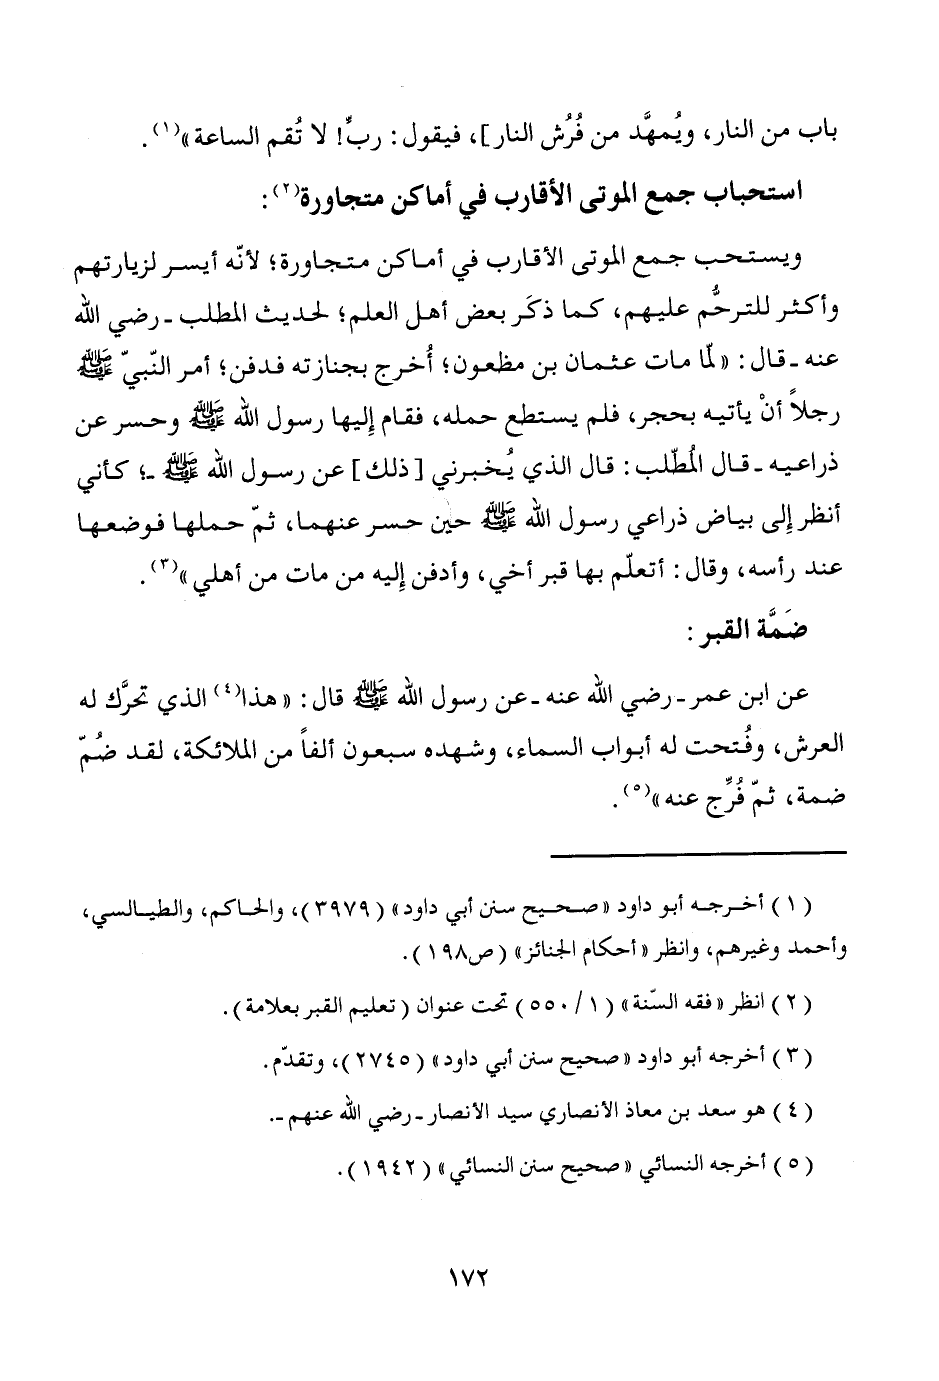 باب من النار، ويُمهَّد من فُرُش النار]، فيقول: ربِّ! لا تُقم الساعة»(١).
استحباب جمع الموتى الأقارب في أماكن متجاورة(٢):
ويستحب جمع الموتى الأقارب في أماكن متجاورة؛ لأنّه أيسر لزيارتهم
وأكثر للترحُّم عليهم، كما ذكَر بعض أهل العلم؛ لحديث المطلب ـ رضي الله
عنه ـ قال: «لمّا مات عثمان بن مظعون؛ أُخرج بجنازته فدفن؛ أمر النّبيّ ﷺ
رجلاً أنْ يأتيه بحجر، فلم يستطع حمله، فقام إليها رسول الله ﷺ وحسر عن
ذراعيه ـ قال المُطّلب: قال الذي يُخبرني [ذلك] عن رسول الله ﷺ ـ؛ كأني
أنظر إلى بياض ذراعي رسول الله ﷺ حين حسر عنهما، ثمّ حملها فوضعها
عند رأسه، وقال: أتعلّم بها قبر أخي، وأدفن إليه من مات من أهلي»(٣).
ضَمَّة القبر:
عن ابن عمر ـ رضي الله عنه ـ عن رسول الله ﷺ قال: «هذا(٤) الذي تحرَّك له
العرش، وفُتحت له أبواب السماء، وشهده سبعون ألفاً من الملائكة، لقد ضُمّ
ضمة، ثمّ فُرِّج عنه»(٥).
(١) أخرجه أبو داود «صحيح سنن أبي داود» (٣٩٧٩)، والحاكم، والطيالسي،
وأحمد وغيرهم، وانظر «أحكام الجنائز» (ص١٩٨).
(٢) انظر «فقه السّنة» (١/ ٥٥٠) تحت عنوان (تعليم القبر بعلامة).
(٣) أخرجه أبو داود «صحيح سنن أبي داود» (٢٧٤٥)، وتقدّم.
(٤) هو سعد بن معاذ الأنصاري سيد الأنصار ـ رضي الله عنهم ـ.
(٥) أخرجه النسائي «صحيح سنن النسائي» (١٩٤٢).
١٧٢